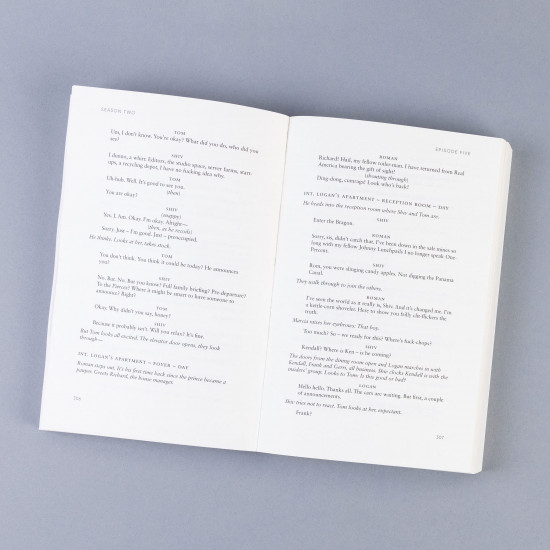 SEASON TWO
TOM
Um, I don't know. You're okay? What did you do, who did you
see?
SHIV
I dunno, a whirr. Editors, the studio space, server farms, start-
ups, a recycling depot, I have no fucking idea why.
TOM
Uh-huh. Well. It's good to see you.
(then)
You are okay?
SHIV
(snappy)
Yes. I. Am. Okay. I'm okay. Alright—
(then, as he recoils)
Sorry. Just – I'm good. Just – preoccupied.
He thinks. Looks at her, takes stock.
TOM
You don't think. You think it could be today? He announces
you?
SHIV
No. But. No. But you know? Full family briefing? Pre-departure?
To the Pierces? Where it might be smart to have someone to
announce? Right?
TOM
Okay. Why didn't you say, honey?
SHIV
Because it probably isn't. Will you relax? It's fine.
But Tom looks all excited. The elevator door opens, they look
through—
INT. LOGAN'S APARTMENT – FOYER – DAY
Roman steps out. It's his first time back since the prince became a
pauper. Greets Richard, the house manager.
EPISODE FIVE
ROMAN
Richard! Hail, my fellow toiler-man. I have returned from Real
America bearing the gift of sight!
(shouting through)
Ding-dong, cuntbags! Look who's back?
INT. LOGAN'S APARTMENT – RECEPTION ROOM – DAY
He heads into the reception room where Shiv and Tom are.
SHIV
Enter the Dragon.
ROMAN
Sorry, sis, didn't catch that. I've been down in the salt mines so
long with my fellow Johnny Lunchpails I no longer speak One-
Percent.
SHIV
Rom, you were slinging candy apples. Not digging the Panama
Canal.
They walk through to join the others.
ROMAN
I've seen the world as it really is, Shiv. And it's changed me. I'm
a kettle-corn shoveler. Here to show you lolly-dicklickers the
truth.
Marcia raises her eyebrows: That boy.
Too much? So – we ready for this? Where's fuck-chops?
SHIV
Kendall? Where is Ken – is he coming?
The doors from the dining room open and Logan marches in with
Kendall, Frank and Gerri, all business. Shiv clocks Kendall is with the
insiders' group. Looks to Tom: Is this good or bad?
LOGAN
Hello hello. Thanks all. The cars are waiting. But first, a couple
of announcements.
Shiv tries not to react. Tom looks at her, expectant.
Frank?